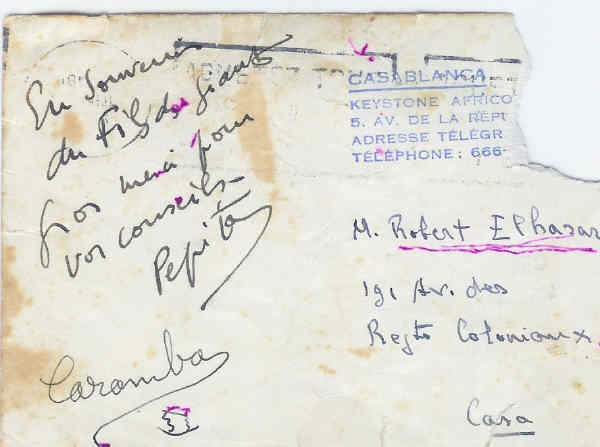 En souvenir
du Fils des géants
gros merci pour
vos conseils
Pepita
Caramba
CASABLANCA
KEYSTONE AFRICO
5. AV. DE LA REPT
ADRESSE TÉLÉGR
TÉLÉPHONE : 666-
M. Robert Elhasar
191 Av. des
Regts Coloniaux.
Casa